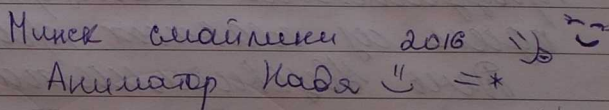 Минск смайлики 2016
Аниматор Надя =*